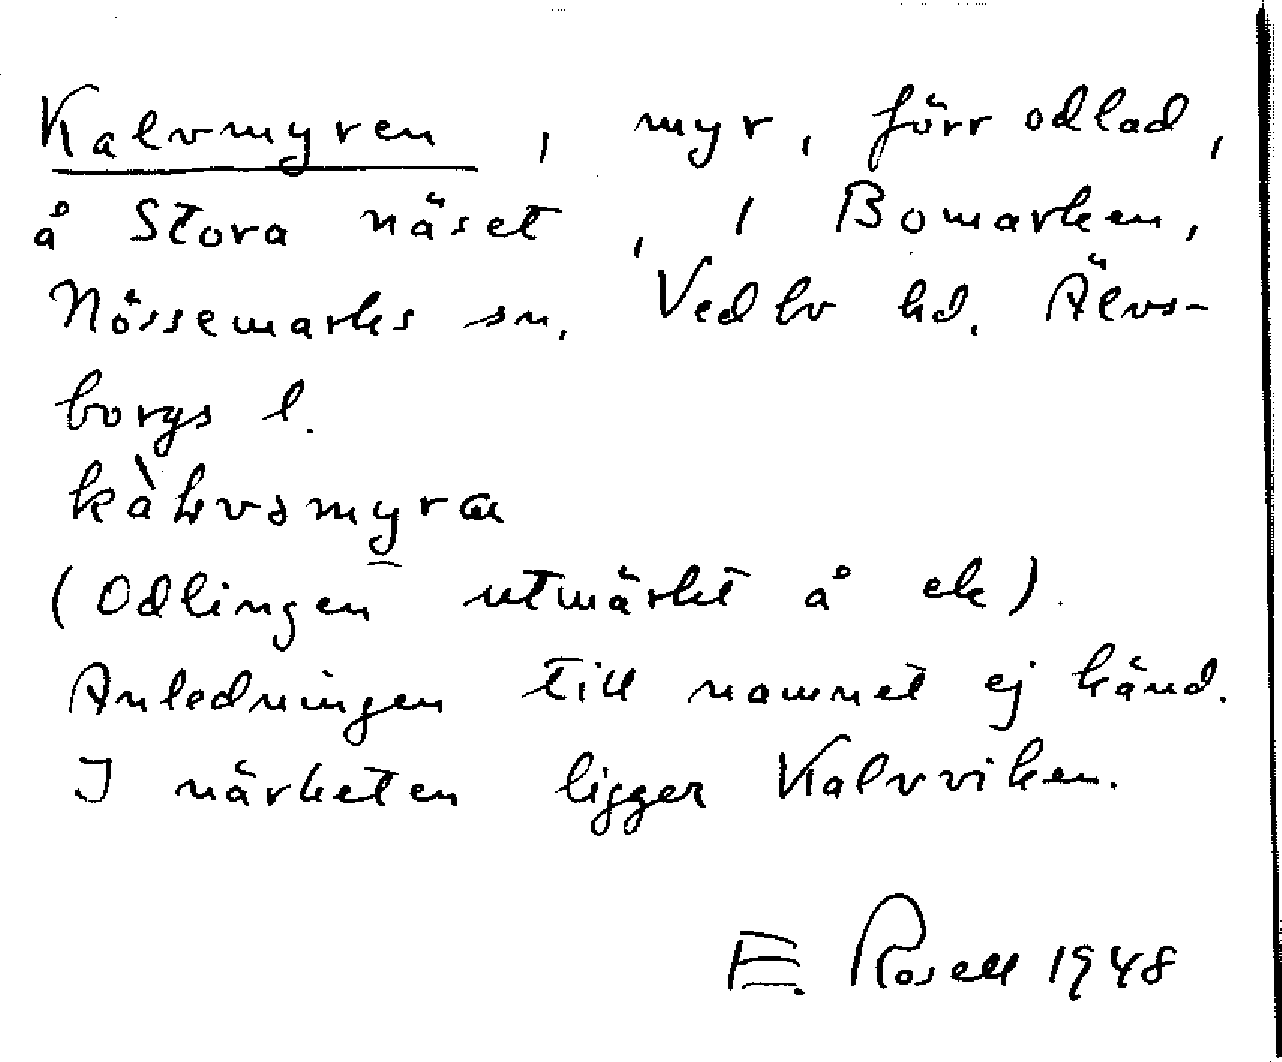 Kalvmyren, myr, förr odlad,
å Stora näset, i Bomarken,
Nössemarks sn, Vedbo hd. Älvs-
borgs l.
(Odlingen utmärkt å ek).
Anledningen till namnet ej känd.
I närheten ligger Kalvviken.
E. Rosell 1948